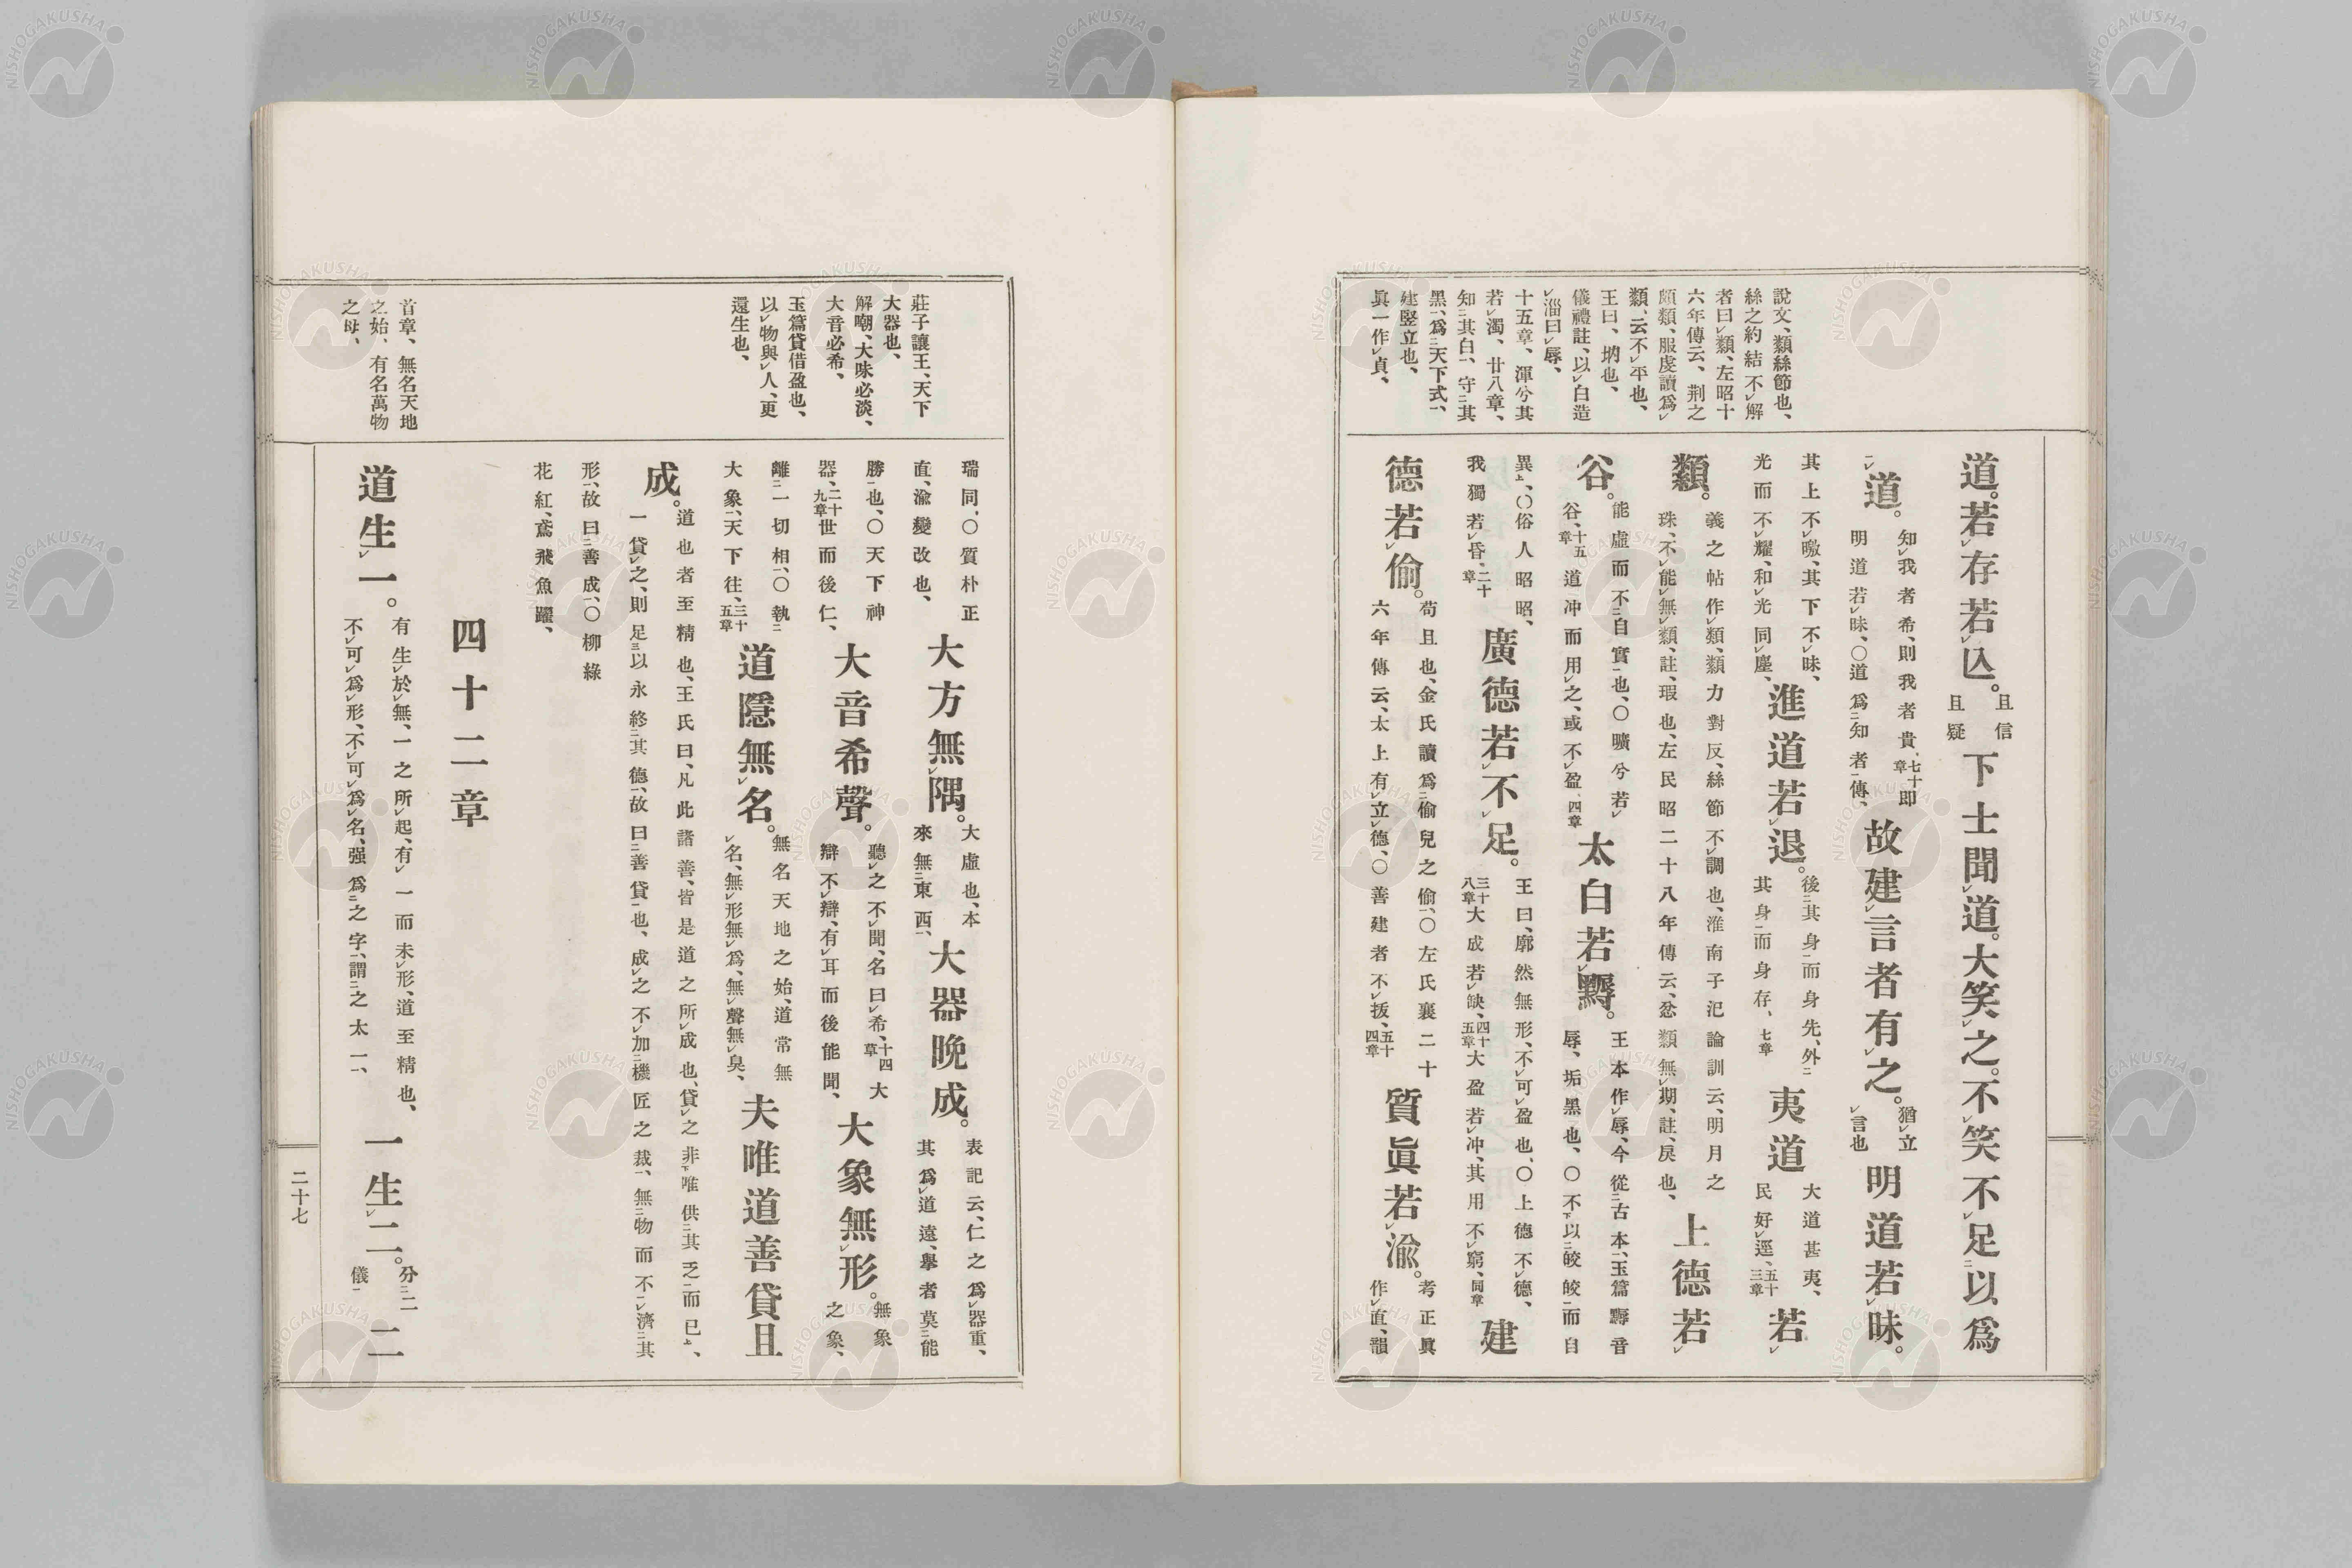 說文、纇絲節也、
絲之約結不解
者曰纇、左昭十
六年傳云、荆之
頗類、服虔讀爲
纇、云不平也、
王曰、㘨也、
儀禮註、以白造
淄曰辱、
十五章、渾兮其
若濁、廿八章、
知其白、守其
黑、爲天下式、
建竪立也、
眞一作貞、
道。若存若亾。且信且疑下士聞道。大笑之。不笑不足以爲
道。知我者希、則我者貴、七十章卽明道若昧、〇道爲知者傳、故建言者有之。猶立言也明道若昧。
其上不皦、其下不昧、光而不耀、和光同塵、進道若退。後其身而身先、外其身而身存、七章夷道大道甚夷、民好逕、五十三章若
纇。義之帖作類、纇力對反、絲節不調也、淮南子氾論訓云、明月之珠、不能無纇、註、瑕也、左民昭二十八年傳云、忿纇無期、註、戾也、上德若
谷。能虛而不自實也、〇曠兮若谷、十五章道冲而用之、或不盈、四章太白若䵰。王本作辱、今從古本、玉篇䵰音辱、垢黑也、〇不以皎皎而自
異、〇俗人昭昭、我獨若昏、二十章廣德若不足。王曰、廓然無形、不可盈也、〇上德不德、三十八章大成若缺、四十五章大盈若冲、其用不窮、同章建
德若偷。苟且也、金氏讀爲偷兒之偷、〇左氏襄二十六年傳云、太上有立德、〇善建者不拔、五十四章質眞若渝。考正眞作直、韻
莊子讓王、天下
大器也、
解嘲、大味必淡、
大音必希、
玉篇貸借盈也、
以物與人、更
還生也、
首章、無名天地
之始、有名萬物
之母、
瑞同、〇質朴正直、渝變改也、大方無隅。大虛也、本來無東西、大器晚成。表記云、仁之爲器重、其爲道遠、擧者莫能
勝也、〇天下神器、二十九章世而後仁、大音希聲。聽之不聞、名曰希、十四章大辯不辯、有耳而後能聞、大象無形。無象之象、
離一切相、〇執大象、天下往、三十五章道隱無名。無名天地之始、道常無名、無形無爲、無聲無臭、夫唯道善貸且
成。道也者至精也、王氏曰、凡此諸善、皆是道之所成也、貸之非唯供其乏而已、一貸之、則足以永終其德、故曰善貸也、成之不加機匠之裁、無物而不濟其
形、故曰善成、〇柳綠
花紅、鳶飛魚躍、
四十二章
道生一。有生於無、一之所起、有一而未形、道至精也、不可爲形、不可爲名、强爲之字、謂之太一、一生二。分二儀二
二十七
NISHOGAKUSHA